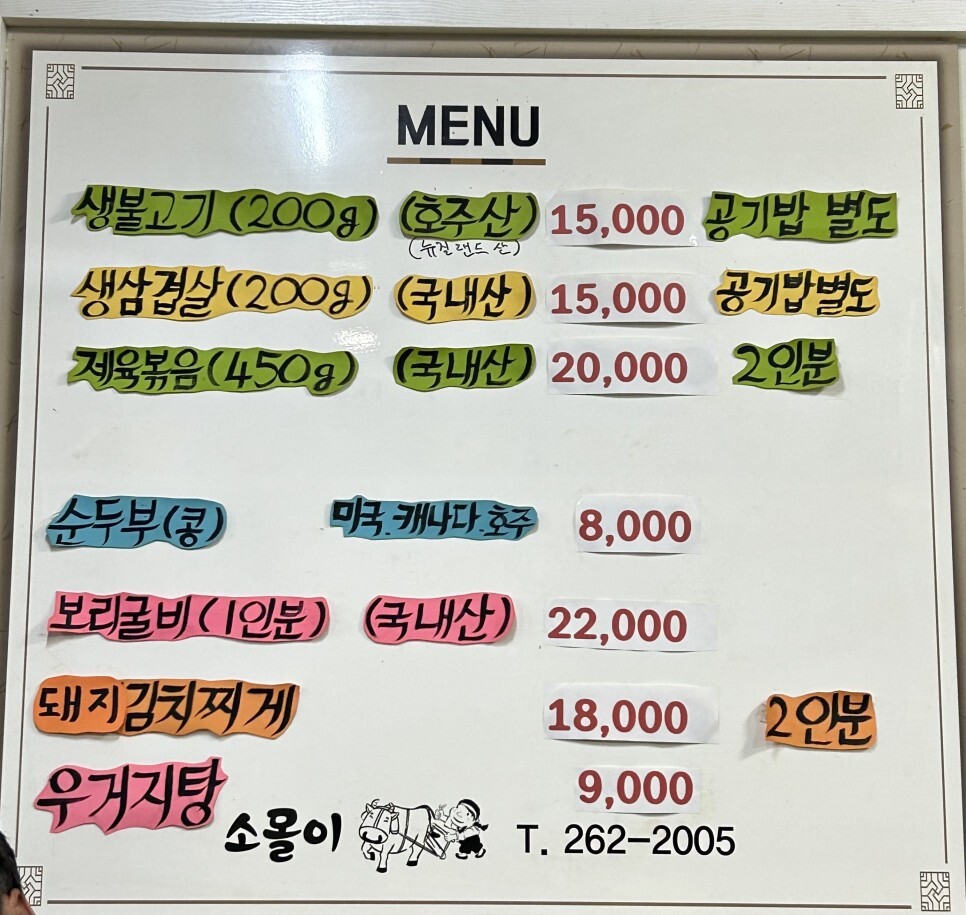 MENU
생불고기(200g) (호주산) 15,000 공기밥 별도
(뉴질랜드 산)
생삼겹살(200g) (국내산) 15,000 공기밥별도
제육볶음(450g) (국내산) 20,000 2인분
순두부(콩) 미국.캐나다.호주 8,000
보리굴비(1인분) (국내산) 22,000
돼지김치찌게 18,000 2인분
우거지탕 9,000
소몰이 T. 262-2005